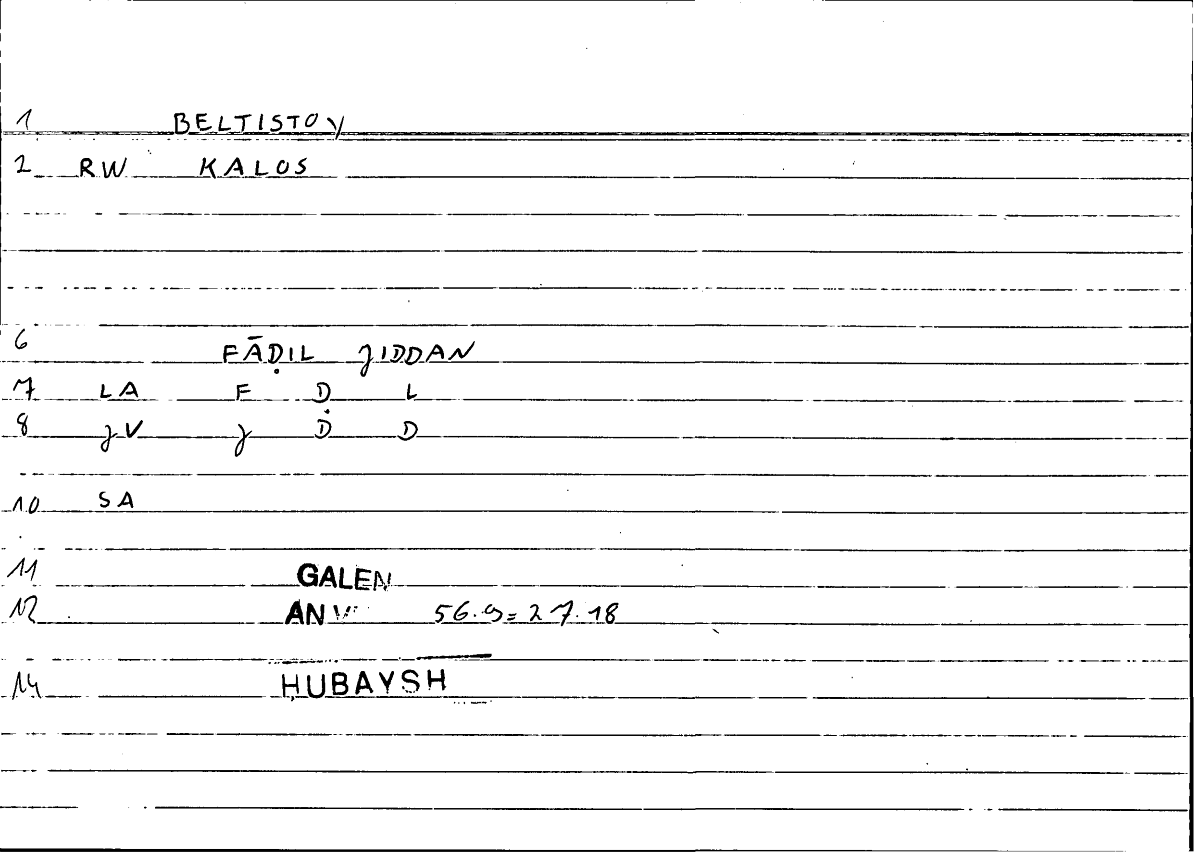 1 BELTISTOY
2 RW KALOS
6 FĀḌIL JIDDAN
7 LA F Ḍ L
8 JV J Ḋ D
10 SA
11 GALEN
12 56.9=27.18
14 ḤUBAYSH